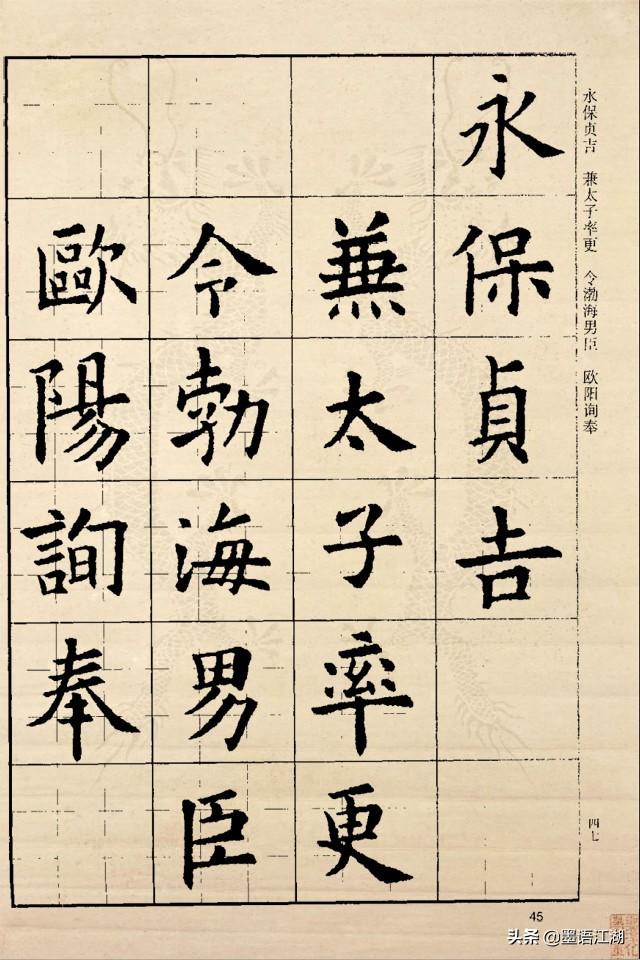 永保貞吉
兼太子率更
令勃海男臣
歐陽詢奉
永保贞吉 兼太子率更 令渤海男臣 欧阳询奉
四七
45
头条 @墨语江湖